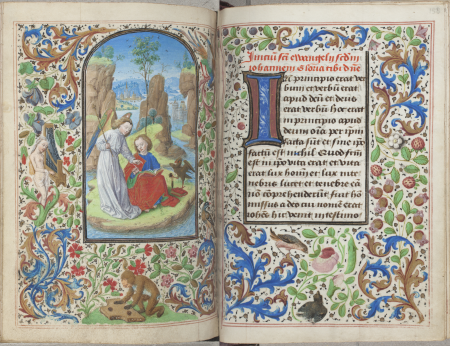 Initiu sci ewangelii scdm
iohannem Gloria tibi dne
In principio erat ver
bum et verbu erat
apud deu et deus
erat verbu hoc erat
in principio apud
deum oia per ipm
facta sut et sine ipo
factu est nichil Quod fcm
est in ipo vita erat et vita
erat lux hoim et lux in te
nebris lucet et tenebre ea
no coprehederut fuit ho
missus a deo cui nome erat
iohes hic venit in testimo